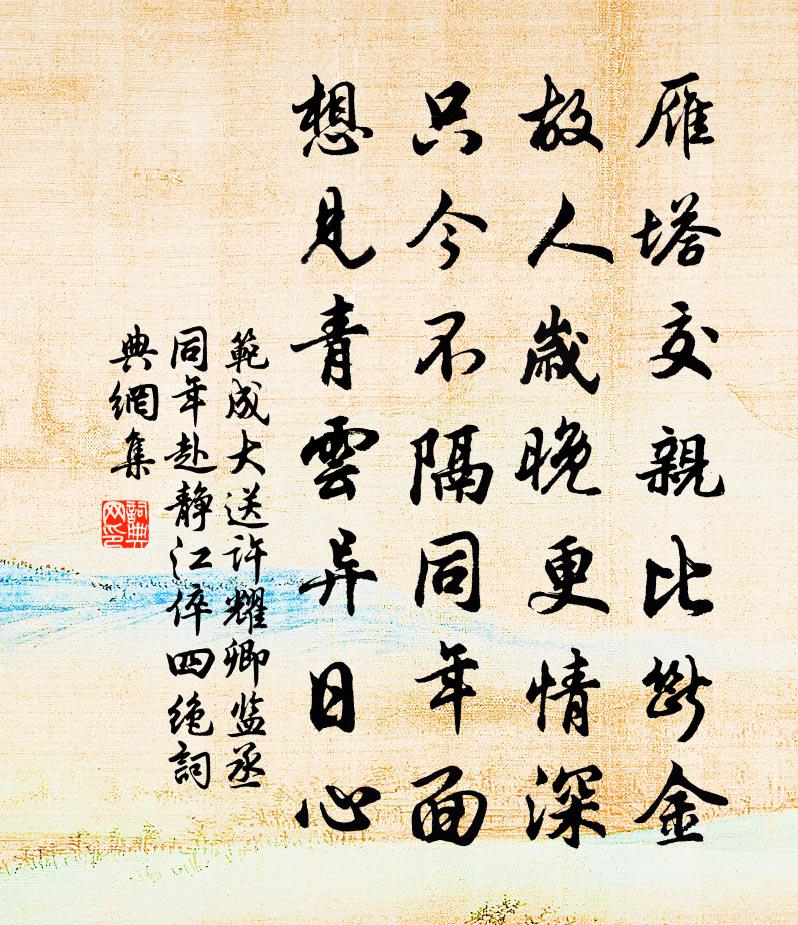 雁塔交親比斷金
故人歲晚更情深
只今不隔同年面
想見青雲异日心
範成大送許耀卿監丞
同年赴靜江倅四絶詞
典網集
詞典网印